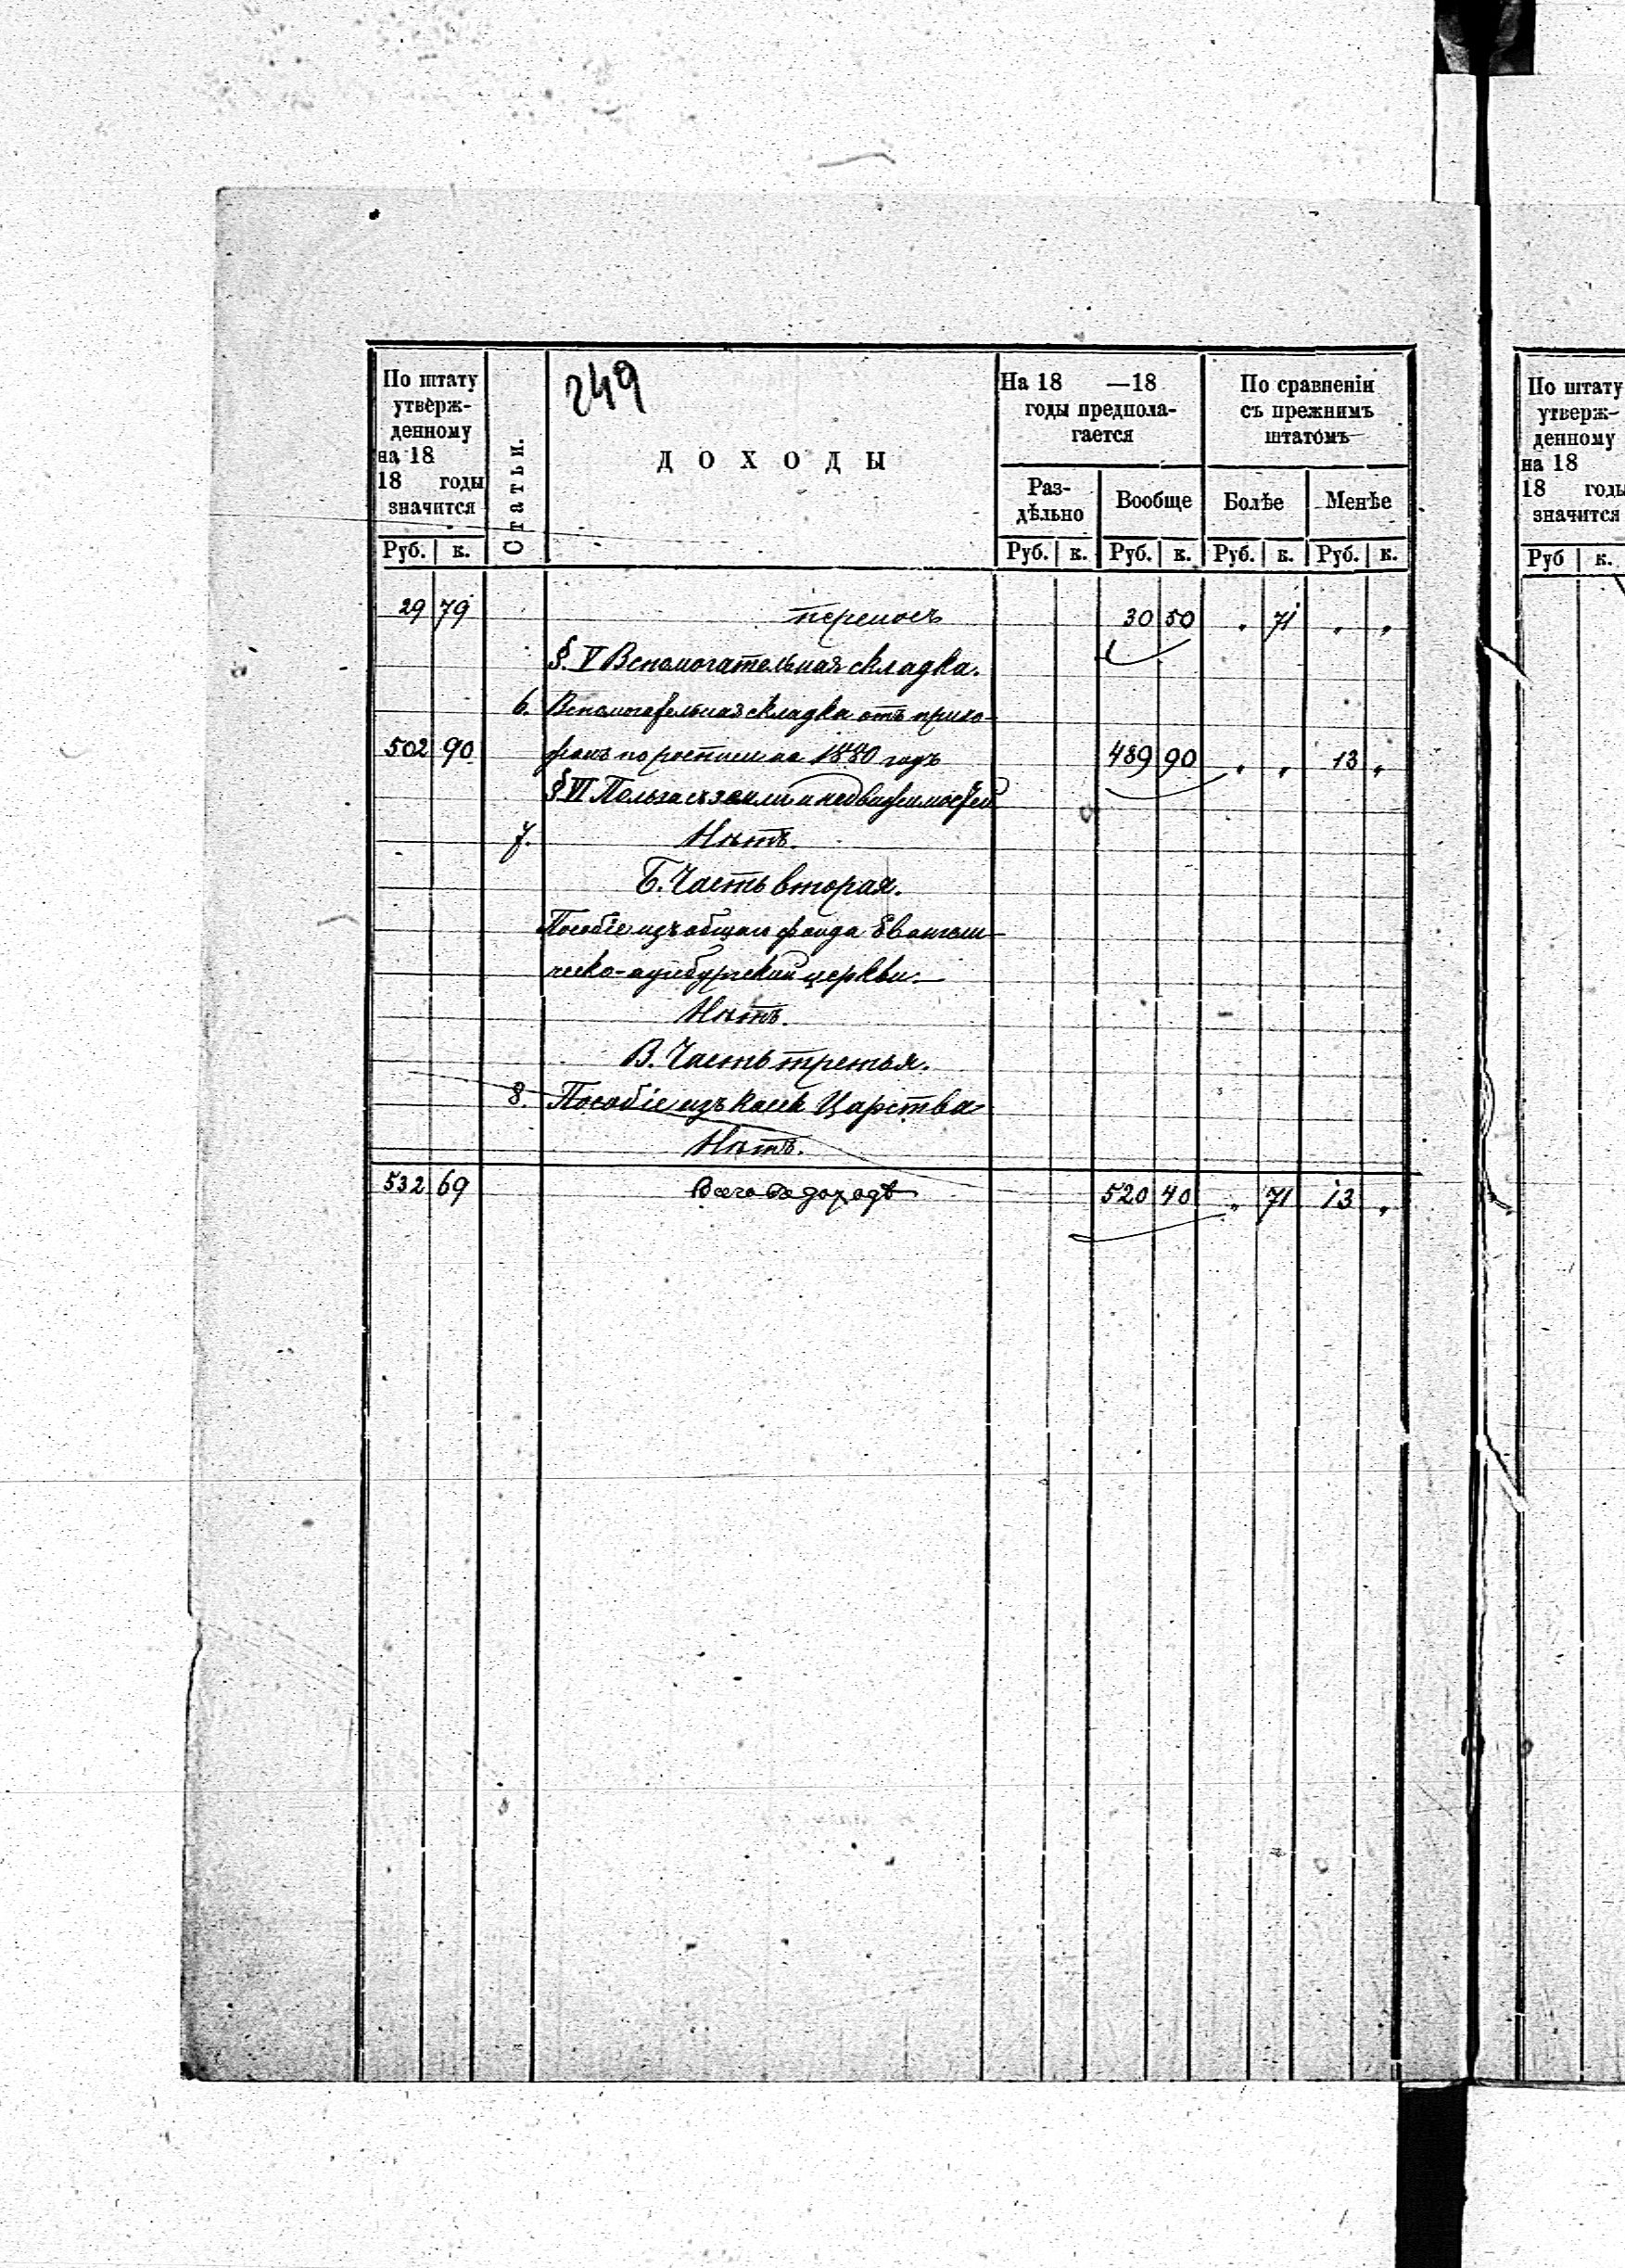 249
По штату
утверж-
денному
на 18
18 годы
значится
Руб. к.
Статьи.
ДОХОДЫ
На 18 —18
годы предпола-
гается
Раз-
дѣльно
Руб. к.
Вообще
Руб. к.
По сравненіи
съ прежнимъ
штатомъ
Болѣе
Руб. к.
Менѣе
Руб. к.
29 79 переносъ 30 50 „ 71 „ „
§. V Вспомогательная складка.
6. Вспомогательная складка отъ прихо-
502 90 жанъ по росписи на 1880 годъ 489 90 „ „ 13 „
§ VI Польза съ земли и недвижимостей
7. Нѣтъ.
Б. Часть вторая.
Пособіе изъ общаго фонда Евангели-
ческо-аугсбургской церкви.
Нѣтъ.
В. Часть третья.
8. Пособіе изъ касс Царства
Нѣтъ.
532 69 Всего въ доходѣ 520 40 „ 71 13 „
По штату
утверж-
денному
на 18
18 годы
значится
Руб к.